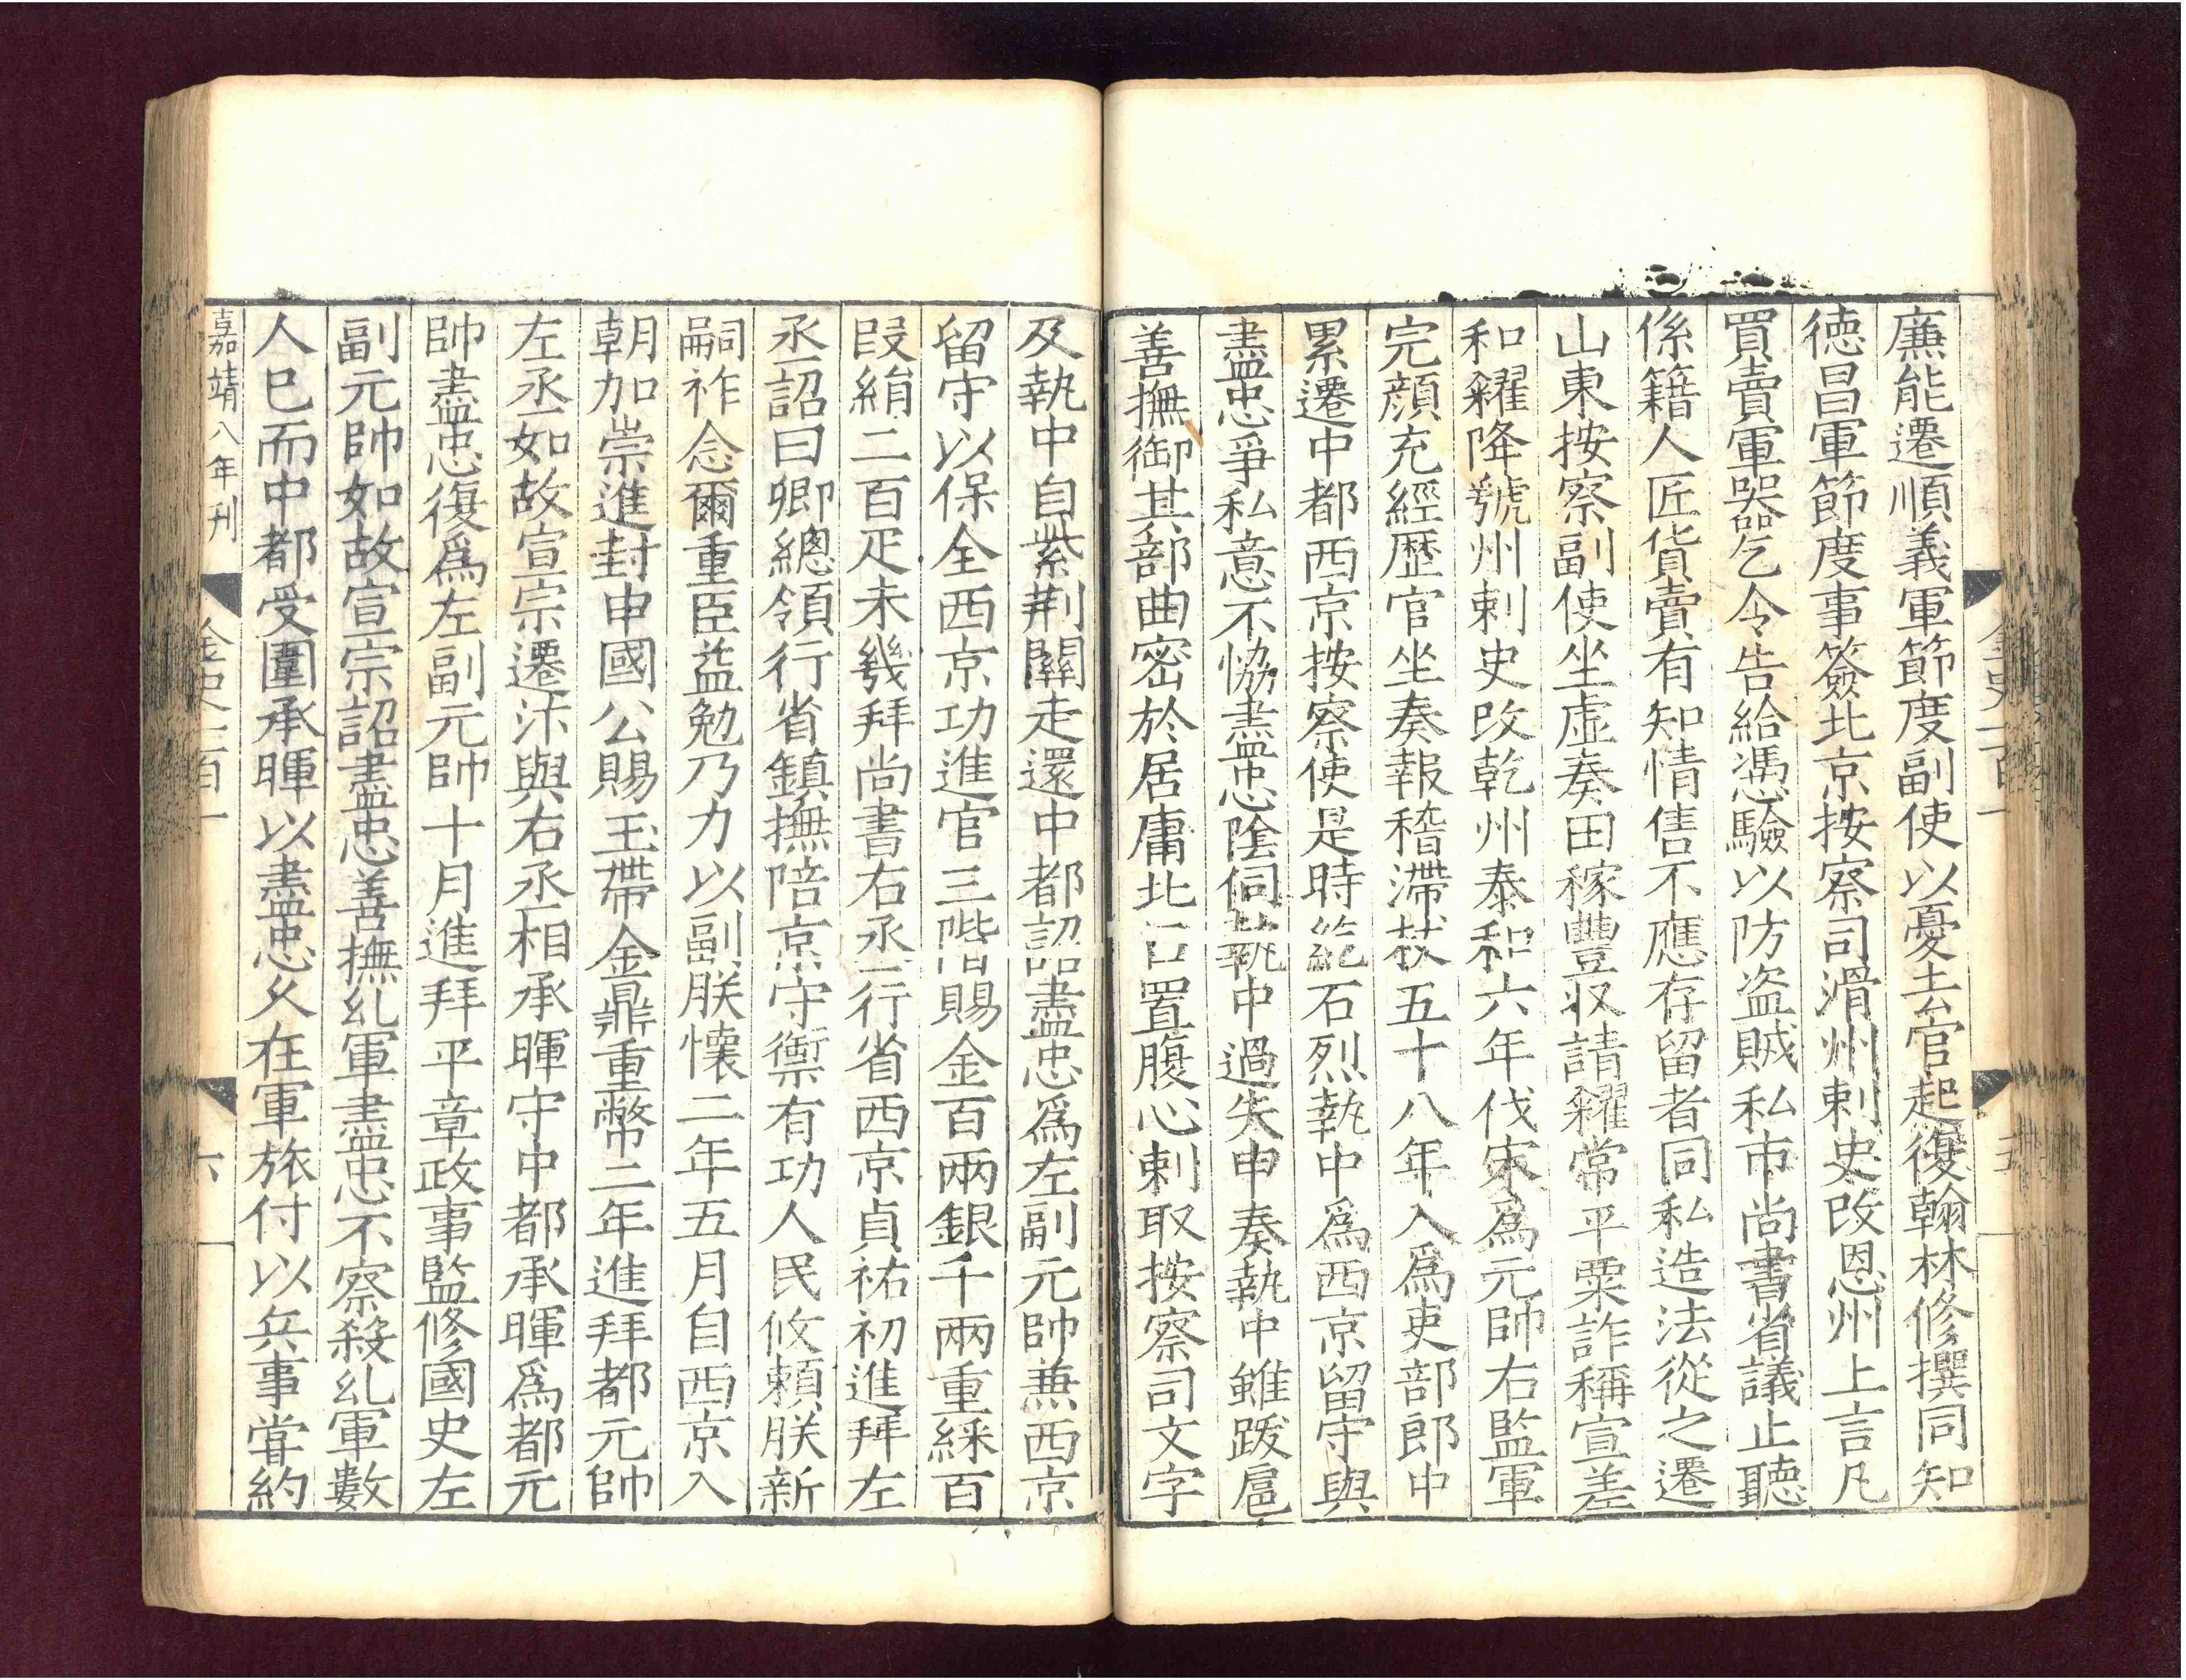 廉能遷順義軍節度副使以憂去官起復翰林修撰同知
德昌軍節度事簽北京按察司滑州刺史改恩州上言凡
買賣軍器乞令告給憑驗以防盜賊私市尚書省議止聽
係籍人匠貨賣有知情售不應存留者同私造法從之遷
山東按察副使坐虛奏田稼豐收請糴常平粟詐稱宣差
和糴降號州刺史改乾州泰和六年伐宋為元帥右監軍
完顏充經歷官坐奏報稽滯杖五十八年入為吏部郎中
累遷中都西京按察使是時紇石烈執中為西京留守與
盡忠爭私意不協盡忠陰伺執中過失申奏執中雖跋扈
善撫御其部曲密於居庸北口置腹心刺取按察司文字
及執中自紫荆關走還中都詔盡忠為左副元帥兼西京
留守以保全西京功進官三階賜金百兩銀千兩重綵百
段絹二百疋未幾拜尚書右丞行省西京貞祐初進拜左
丞詔曰卿總領行省鎮撫陪京守禦有功人民攸賴朕新
嗣祚念爾重臣益勉乃力以副朕懷二年五月自西京入
朝加崇進封申國公賜玉帶金鼎重幣二年進拜都元帥
左丞如故宣宗遷汴與右丞相承暉守中都承暉為都元
帥盡忠復為左副元帥十月進拜平章政事監修國史左
副元帥如故宣宗詔盡忠善撫乣軍盡忠不察殺乣軍數
人已而中都受圍承暉以盡忠久在軍旅付以兵事嘗約
嘉靖八年刊
金史一百一
六